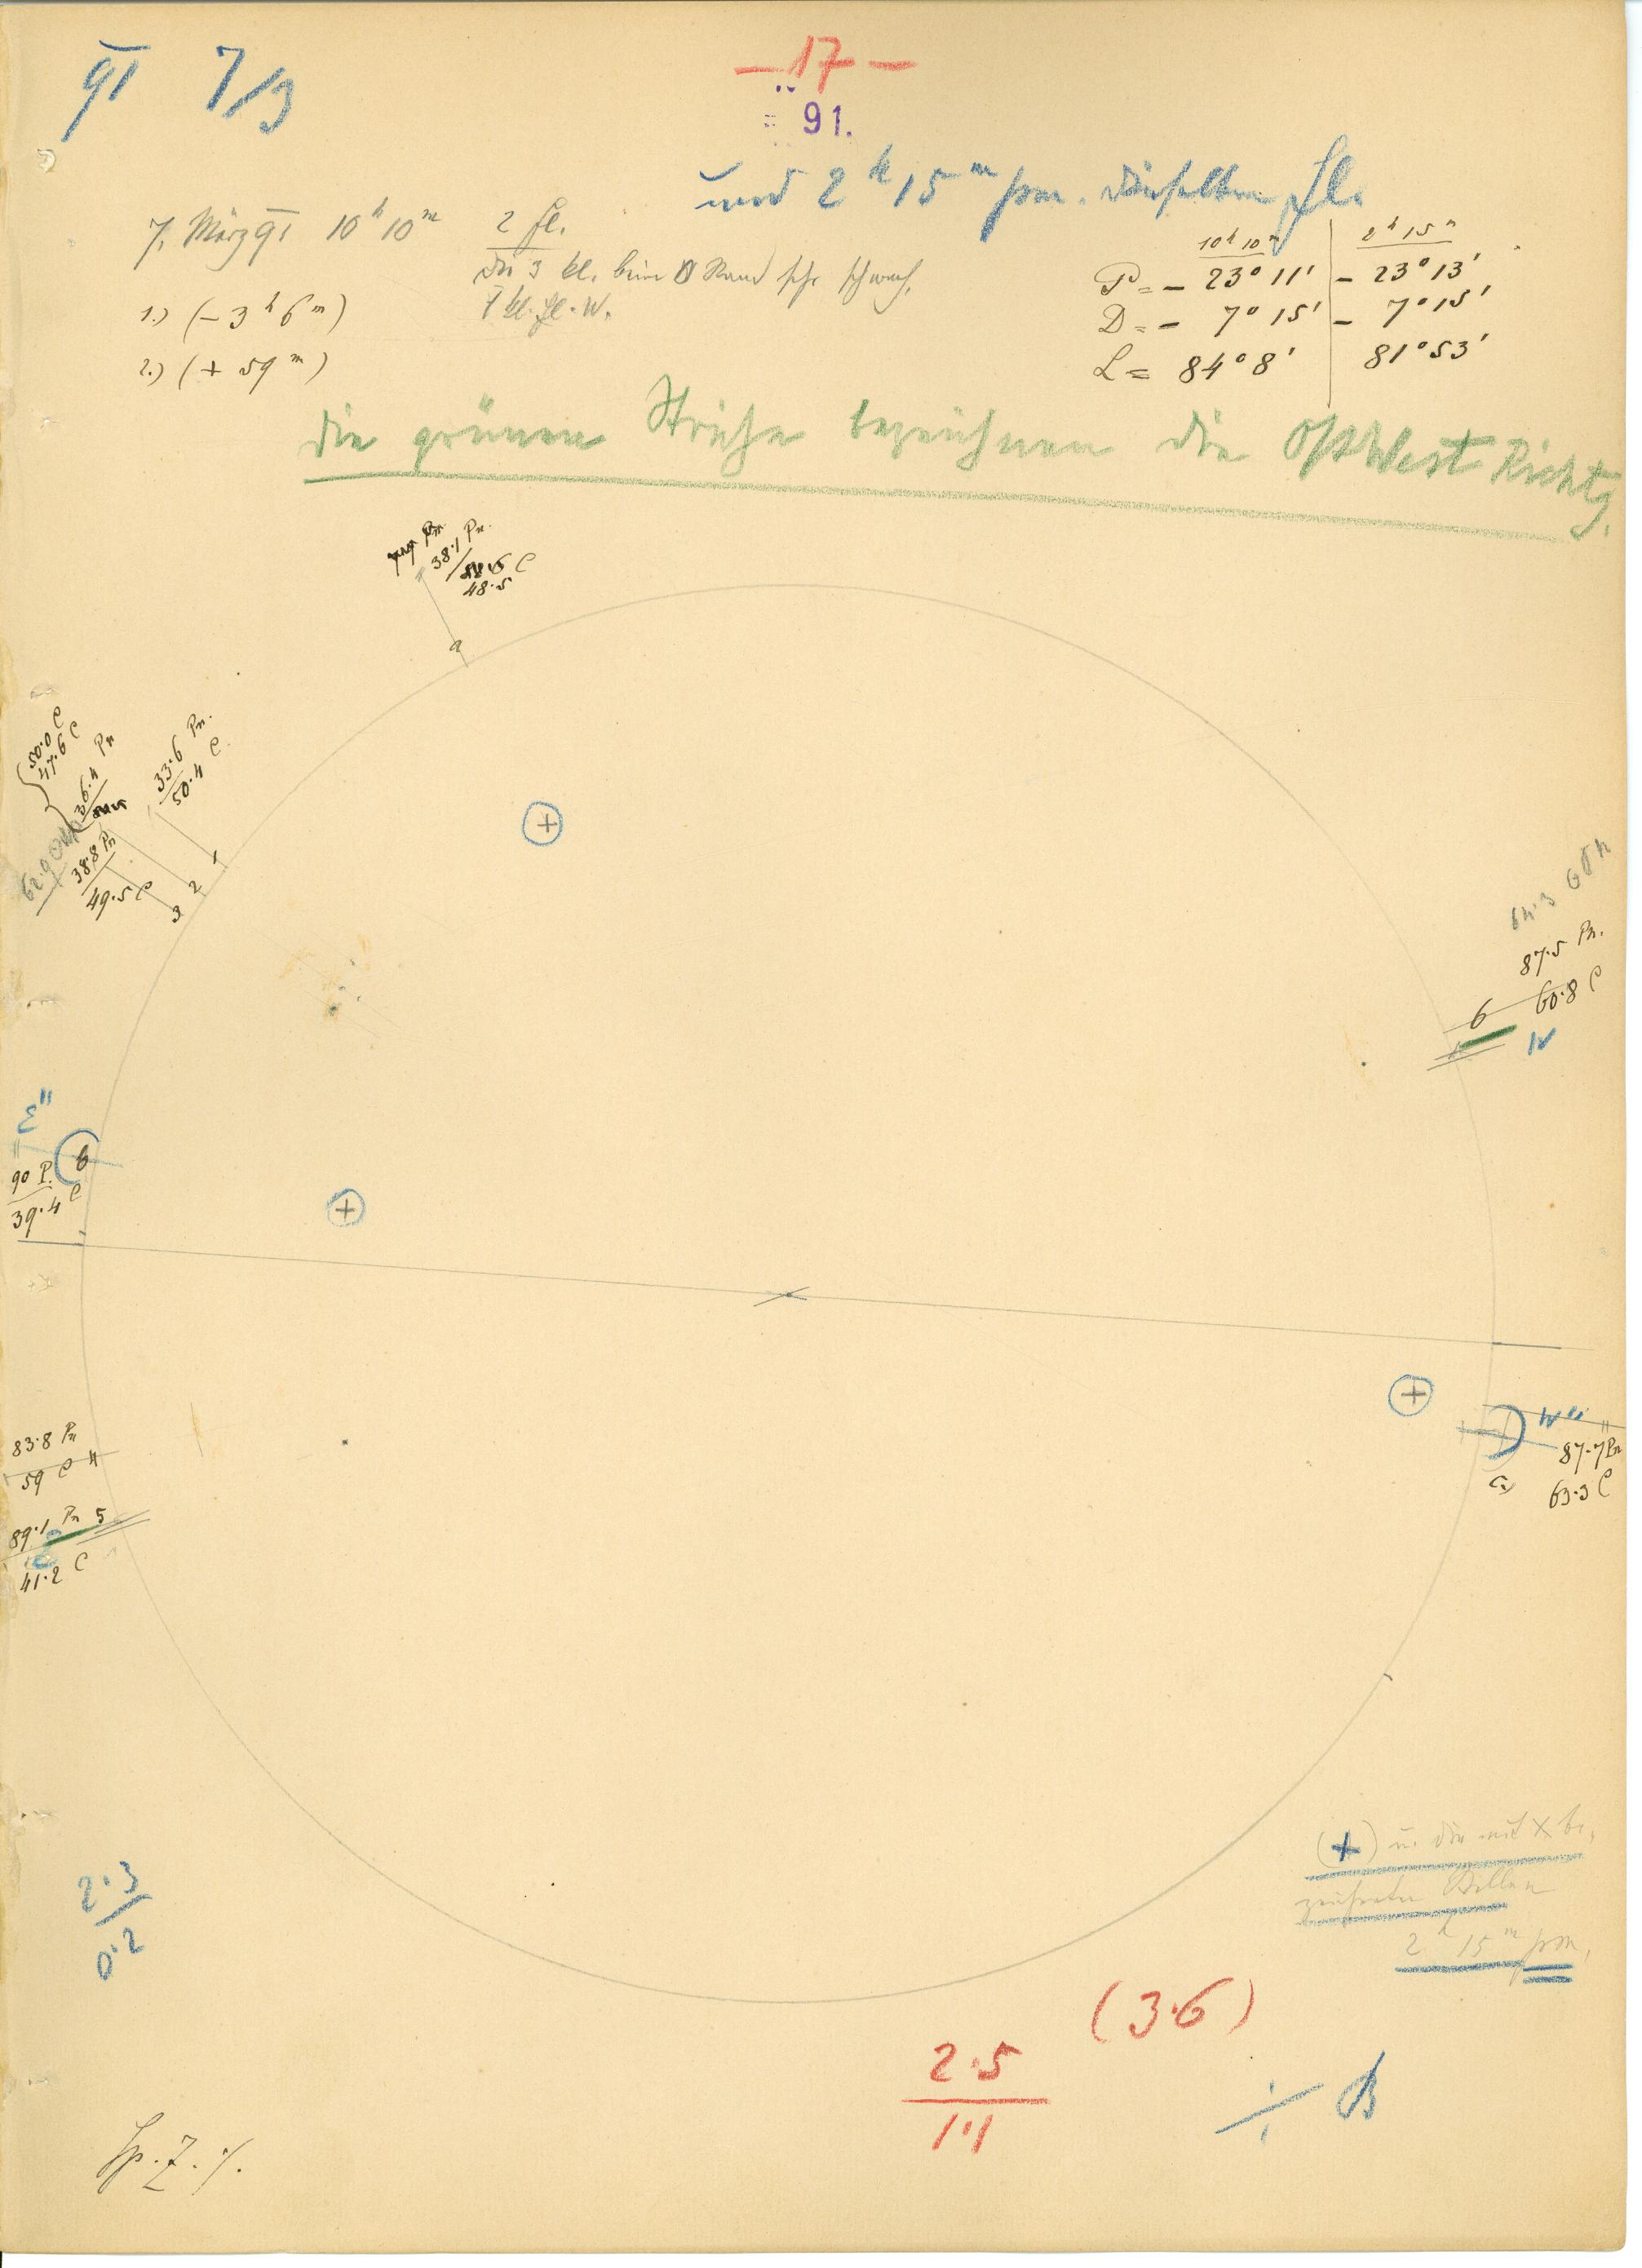 91 7/3
— 17 —
91.
und 2 h 15 m pm. dieselben Fl.
7. März 91 10 h 10 m 2 Fl.
die 3 kl. beim O Rand sehr schwach.
kl. Fl. W.
1.) (- 3 h 6 m)
2.) (+ 59 m)
10 h 10 m 2 h 15 m
P = - 23° 11' - 23° 13'
D = - 7° 15' - 7° 15'
L = 84° 8' 81° 53'
die grünen Striche bezeichnen die OstWest Richtg.
38.1 Pn.
48.5 C
50.0 C
47.6 C
36.4 Pn
33.6 Pn.
50.4 C
1
2
3
38.8 Pn
49.5 C
62.9
64.3
87.5 Pn.
60.8 C
6
W
E"
6
90 P.
39.4 C
83.8 Pn
59 C 4
89.1 Pn 5
41.2 C
W"
87.7 Pn
63.3 C
2.3
0.2
(+) u. die mit × be-
zeichneten Stellen
2 h 15 m pm.
(3.6)
2.5
1.1
B